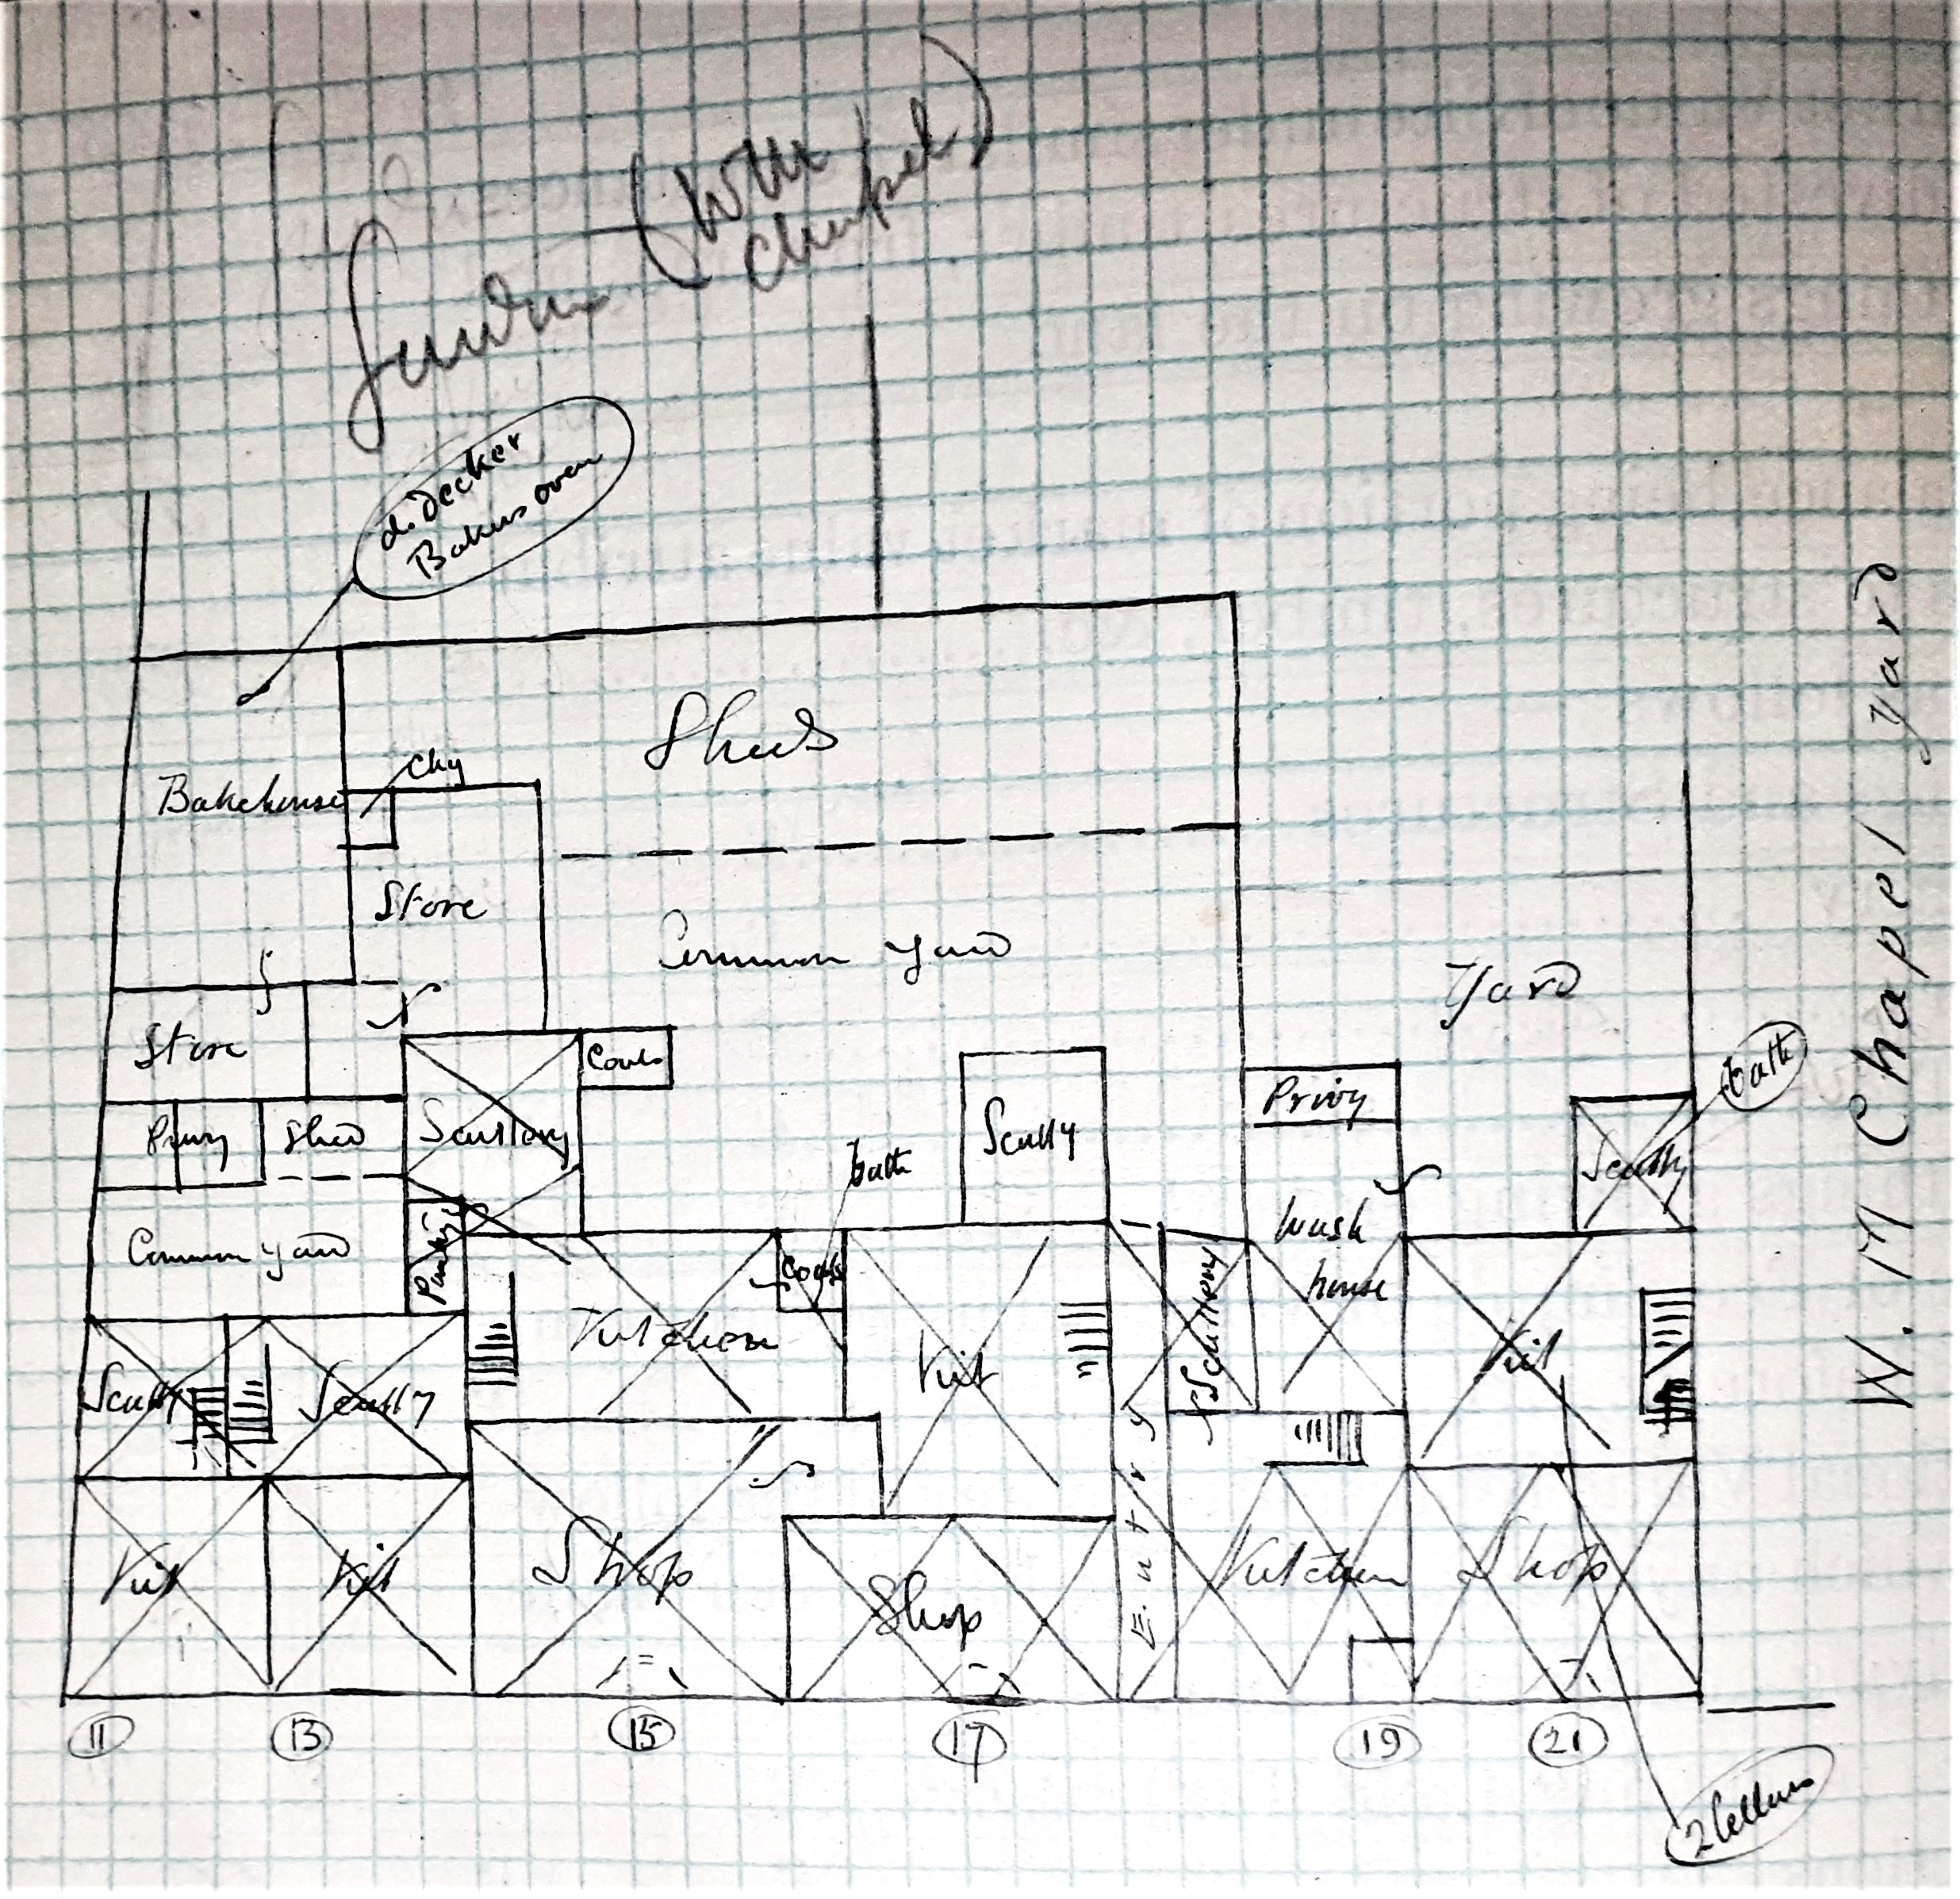 Garden (WM
Chapel)
d. Decker
Bakers oven
Sheds
Chy
Bakehouse
Store
Common Yard
Yard
W. M Chapel yard
Store
Coals
Privy
Shed
Scullery
bath
Scully
Privy
bath
Scully
Common Yard
Pantry
Wash
house
Scully
Scully
Kitchen
Coals
Kit
Scullery
Kit
Entry
Kit
Kit
Shop
Shop
Kitchen
Shop
11
13
15
17
19
21
2 Cellars